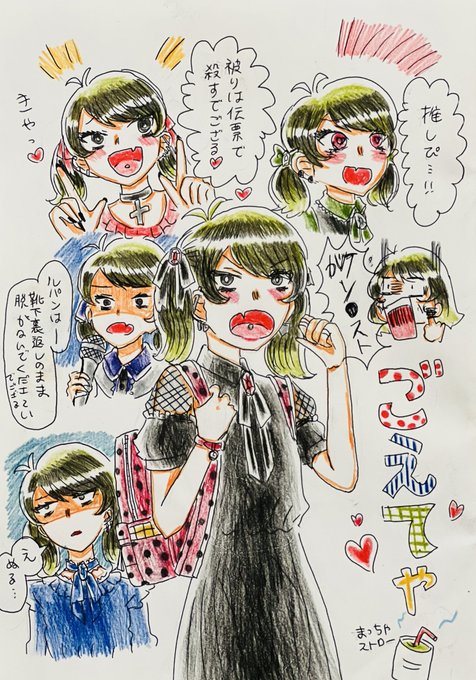 推しぴ…!!
被りは伝票で
殺すでござる
きゃっ
ルパンはー
靴下裏返しのまま
脱がないでください
でござる
ごえてゃ
まっちゃ
ストロー
え
ぬる…